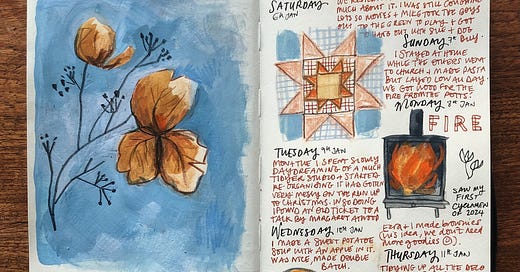 SATURDAY
6th JAN
MUCH ABOUT IT. I WAS STILL COUGHING
LOTS SO MOVIES + MILO TOOK THE GUYS
OUT TO THE GREEN TO PLAY + GOT
SUNDAY 7th
I STAYED AT HOME
WHILE THE OTHERS WENT
TO CHURCH + MADE PASTA
BUT LAYED LOW ALL DAY.
WE GOT WOOD FOR THE
FIRE FROM THE POTTS!
MONDAY 8th JAN
FIRE
SAW MY
FIRST
CYCLAMEN
OF 2024
TUESDAY 9th JAN
MONTUE I SPENT SLOWLY
DAYDREAMING OF A MUCH
TIDYER STUDIO + STARTED
RE-ORGANISING IT HAD GOTTEN
VERY MESSY ON THE RUN UP
TO CHRISTMAS. IN SO DOING
I FOUND AN OLD TICKET TO A
TALK BY MARGARET ATWOOD
WEDNESDAY 10th JAN
I MADE A SWEET POTATOE
SOUP WITH AN APPLE IN IT.
WAS NICE, MADE DOUBLE
BATCH.
EZRA + I MADE BROWNIES
(HIS IDEA, WE DON'T NEED
MORE GOODIES ☺).
THURSDAY 11th JAN
TIDYING UP ALL THE DECO